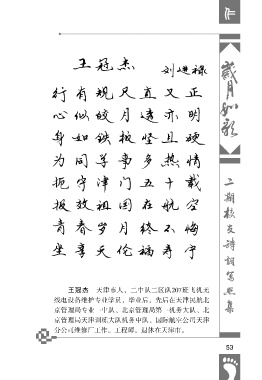 王冠杰 刘进禄
行有规尺直又正
心似皎月透亦明
身如铁板坚且硬
为同导事多热情
扼守津门五十载
报放祖国在航空
青春岁月终不悔
坐享天伦福寿宁
王冠杰 天津市人，二中队二区队207班飞机无
线电设备维护专业学员，毕业后，先后在天津民航北
京管理局专业一中队、北京管理局第一机务大队、北
京管理局天津训练大队机务中队、国际航空公司天津
分公司维修厂工作。工程师。退休在天津市。
岁月如歌
二期校友诗词写照集
53